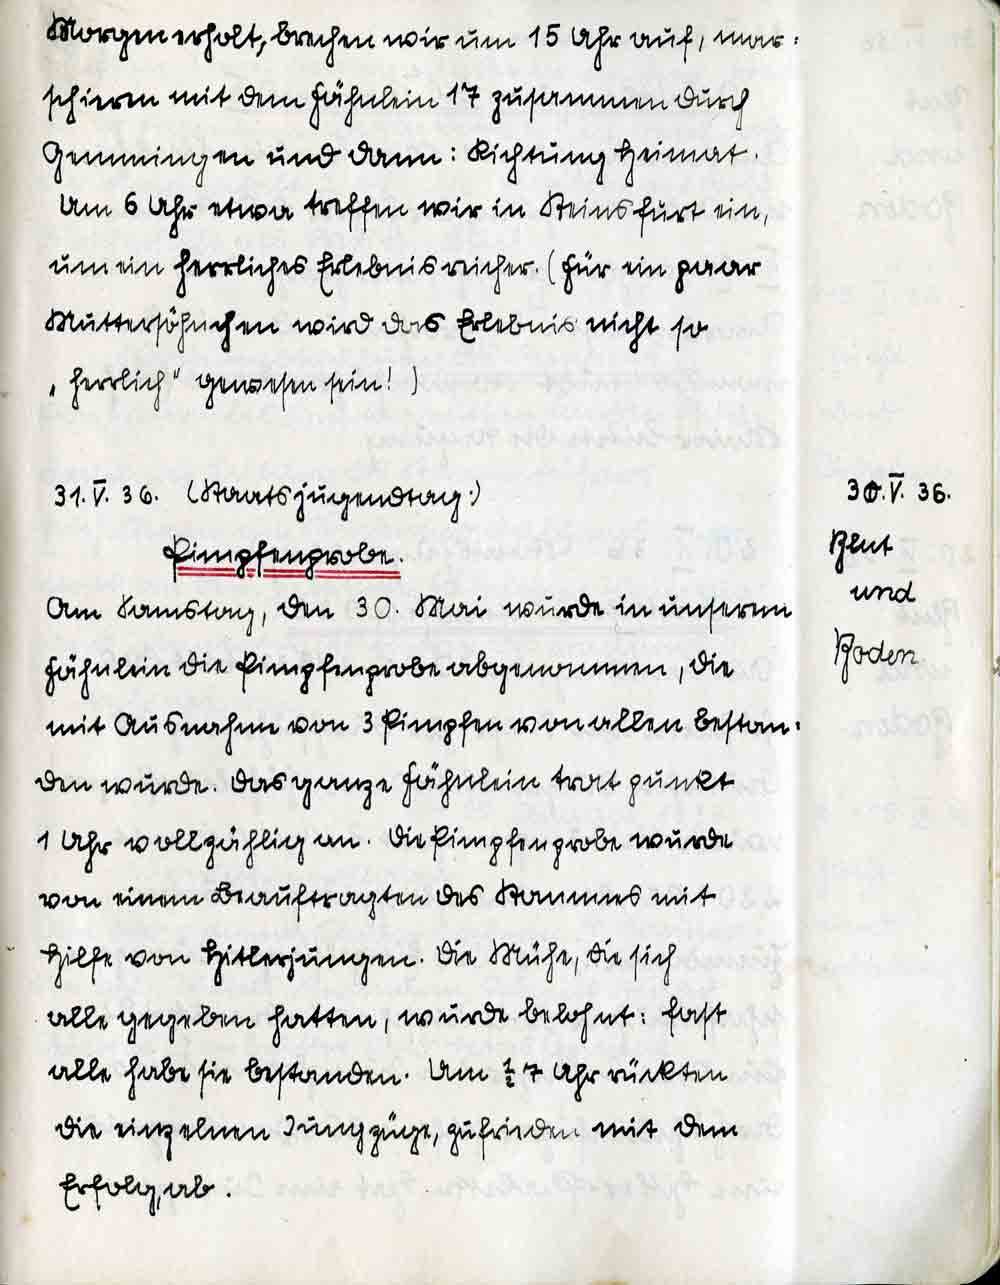 Morgen erholt, brechen wir um 15 Uhr auf, mar-
schieren mit dem Fähnlein 17 zusammen durch
Gemmingen und dann: Richtung Heimat.
Um 6 Uhr etwa treffen wir in Steinsfurt ein,
um ein herrliches Erlebnis reicher. (Für ein paar
Muttersöhnchen wird das Erlebnis nicht so
„herrlich“ gewesen sein!)
31. V. 36. (Staatsjugendtag:)
Pimpfenprobe.
Am Samstag, den 30. Mai wurde in unserem
Fähnlein die Pimpfenprobe abgenommen, die
mit Ausnahme von 3 Pimpfen von allen bestan-
den wurde. Das ganze Fähnlein trat punkt
1 Uhr vollzählig an. Die Pimpfenprobe wurde
von einem Beauftragten des Stammes mit
Hilfe von Hitlerjungen. Die Mühe, die sich
alle gegeben hatten, wurde belohnt: fast
alle habe sie bestanden. Um ½ 7 Uhr rückten
die einzelnen Jungzüge, zufrieden mit dem
Erfolg, ab.
30. V. 36.
Blut
und
Boden